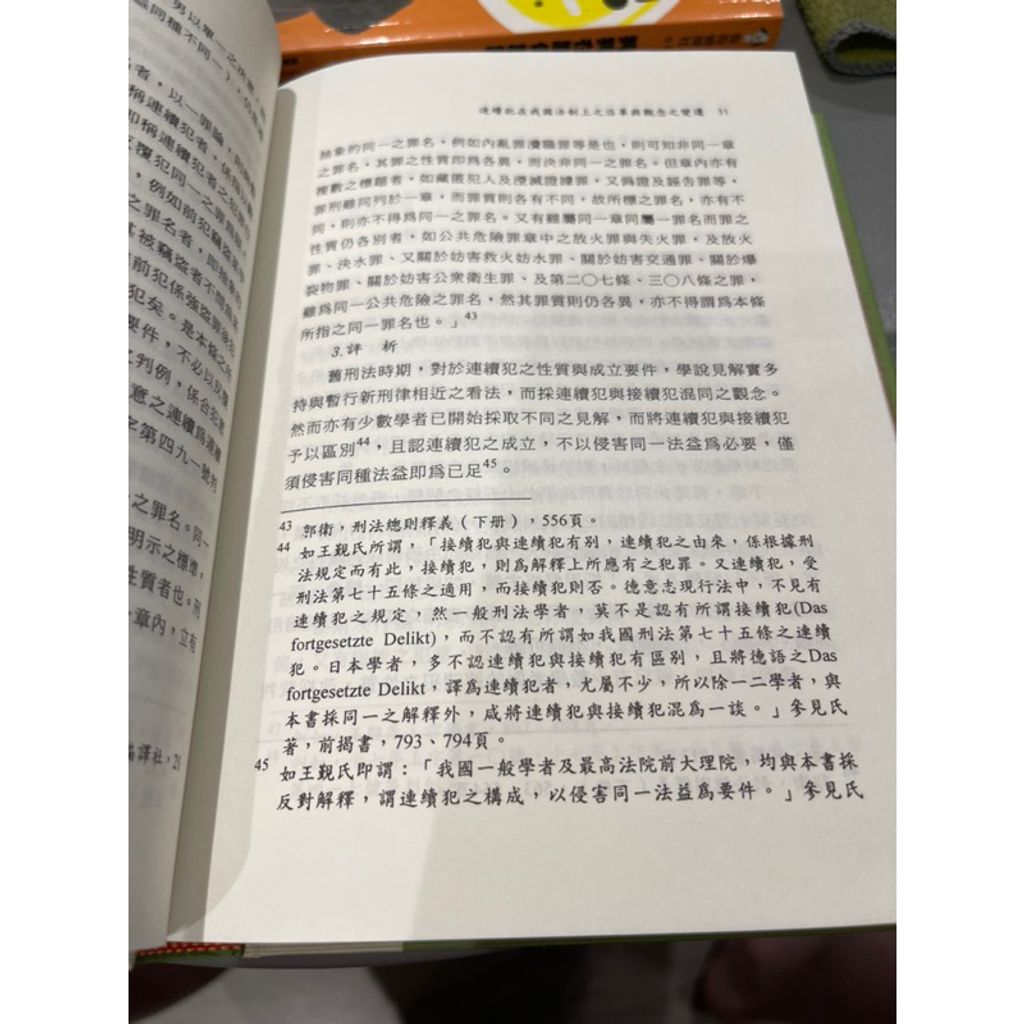 連續犯在我國法制上之沿革與觀念之變遷 31
抽象的同一之罪名，例如內亂罪瀆職罪等是也，則可知非同一章
之罪名，其罪之性質即爲各異，而決非同一之罪名。但章內亦有
複數之標題者，如藏匿犯人及湮滅證據罪，又僞證及誣告罪等，
罪刑雖同列於一章，而罪質則各有不同，故所標之罪名，亦有不
同，則亦不得爲同一之罪名。又有雖屬同一章同屬一罪名而罪之
性質仍各別者，如公共危險罪章中之放火罪與失火罪，及放火
罪、決水罪、又關於妨害救火妨水罪、關於妨害交通罪、關於爆
裂物罪、關於妨害公衆衛生罪、及第二〇七條、三〇八條之罪，
雖爲同一公共危險之罪名，然其罪質則仍各異，亦不得謂爲本條
所指之同一罪名也。」43
3.評 析
舊刑法時期，對於連續犯之性質與成立要件，學說見解實多
持與暫行新刑律相近之看法，而採連續犯與接續犯混同之觀念。
然而亦有少數學者已開始採取不同之見解，而將連續犯與接續犯
予以區別44，且認連續犯之成立，不以侵害同一法益爲必要，僅
須侵害同種法益即爲已足45。
43 郭衛，刑法總則釋義（下册），556頁。
44 如王覲氏所謂，「接續犯與連續犯有別，連續犯之由來，係根據刑
法規定而有此，接續犯，則爲解釋上所應有之犯罪。又連續犯，受
刑法第七十五條之適用，而接續犯則否。德意志現行法中，不見有
連續犯之規定，然一般刑法學者，莫不是認有所謂接續犯(Das
fortgesetzte Delikt)，而不認有所謂如我國刑法第七十五條之連續
犯。日本學者，多不認連續犯與接續犯有區別，且將德語之Das
fortgesetzte Delikt，譯爲連續犯者，尤屬不少，所以除一二學者，與
本書採同一之解釋外，咸將連續犯與接續犯混爲一談。」參見氏
著，前揭書，793、794頁。
45 如王覲氏即謂：「我國一般學者及最高法院前大理院，均與本書採
反對解釋，謂連續犯之構成，以侵害同一法益爲要件。」參見氏